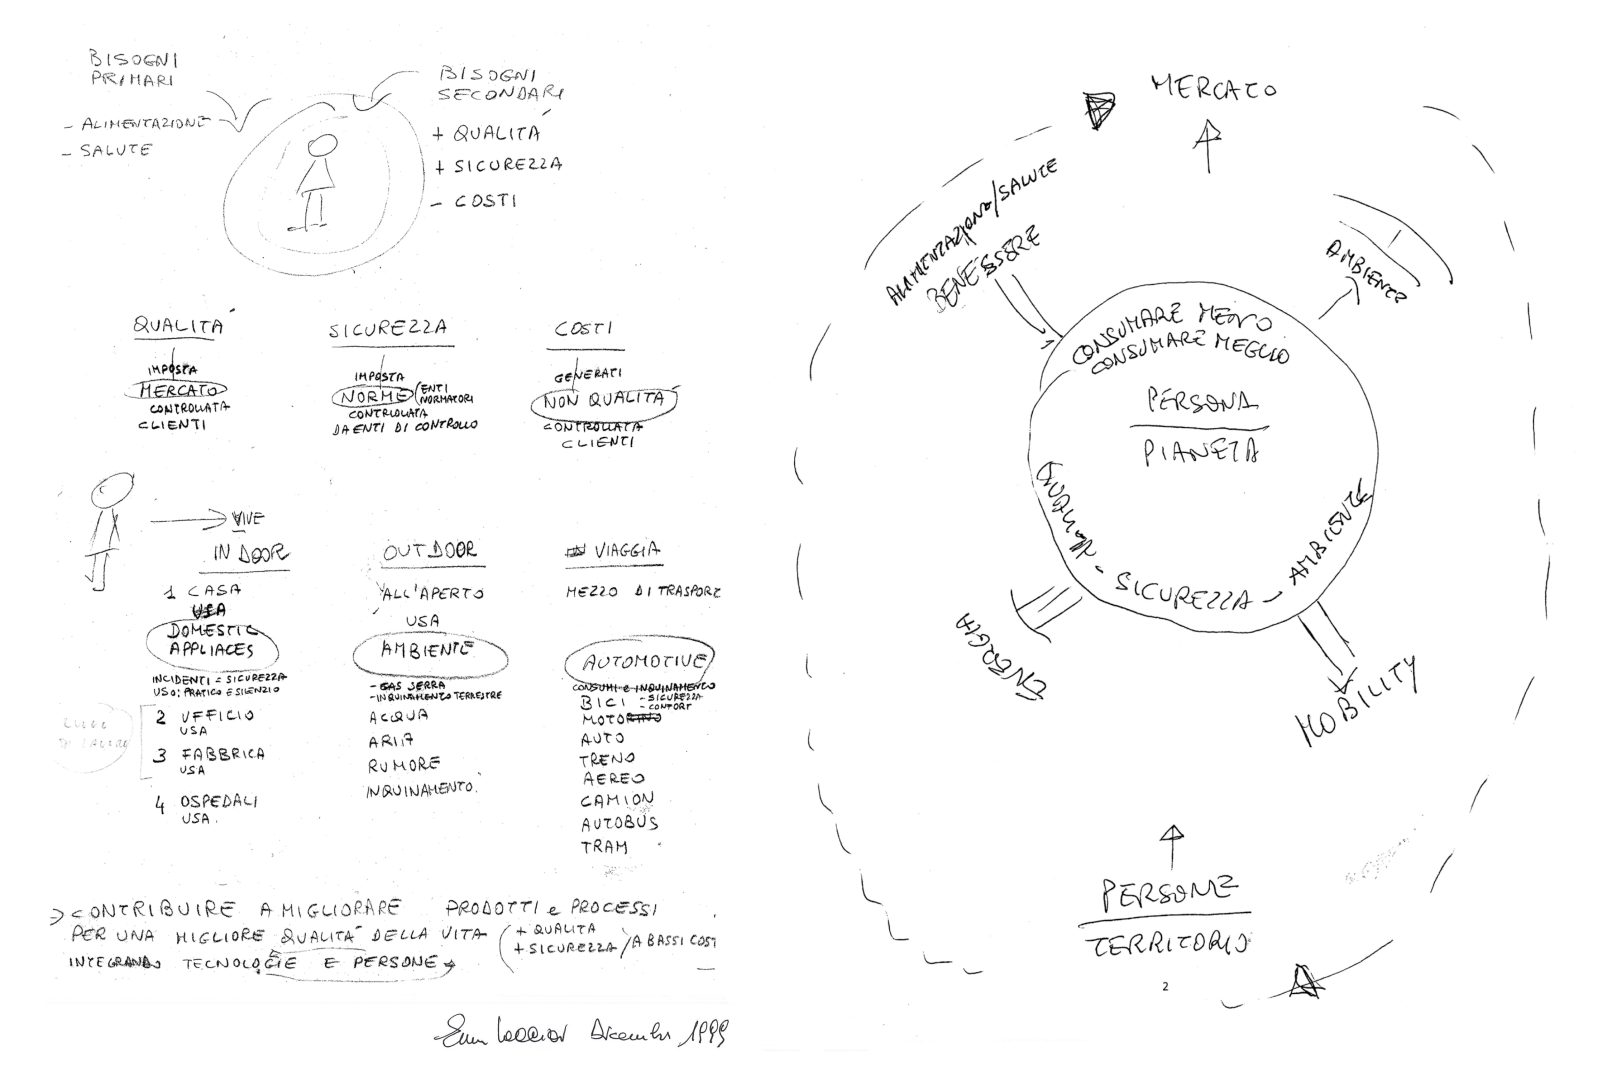 BISOGNI
PRIMARI
- ALIMENTAZIONE
- SALUTE
BISOGNI
SECONDARI
+ QUALITÀ
+ SICUREZZA
- COSTI
QUALITÀ
IMPOSTA
MERCATO
CONTROLLATA
CLIENTI
SICUREZZA
IMPOSTA
NORME (ENTI
NORMATORI
CONTROLLATA
DA ENTI DI CONTROLLO
COSTI
GENERATI
NON QUALITÀ
CONTROLLATA
CLIENTI
VIVE
INDOOR
1 CASA
USA
DOMESTIC
APPLIACES
INCIDENTI = SICUREZZA
USO: PRATICO E SILENZIO
2 UFFICIO
USA
3 FABBRICA
USA
4 OSPEDALI
USA.
OUTDOOR
ALL'APERTO
USA
AMBIENTE
- GAS SERRA
- INQUINAMENTO TERRESTRE
ACQUA
ARIA
RUMORE
INQUINAMENTO.
VIAGGIA
MEZZO DI TRASPORT
AUTOMOTIVE
CONSUMI e INQUINAMENTO
- SICUREZZA
- CONFORT
BICI
MOTORINO
AUTO
TRENO
AEREO
CAMION
AUTOBUS
TRAM
=> CONTRIBUIRE A MIGLIORARE PRODOTTI e PROCESSI
PER UNA MIGLIORE QUALITÀ DELLA VITA (+ QUALITÀ
+ SICUREZZA / A BASSI COSTI
INTEGRANDO TECNOLOGIE E PERSONE
1999
MERCATO
ALIMENTAZIONE/SALUTE
BENESSERE
AMBIENTE
CONSUMARE MENO
CONSUMARE MEGLIO
PERSONA
PIANETA
- SICUREZZA - AMBIENTE
ENERGIA
MOBILITY
PERSONE
TERRITORIO
2